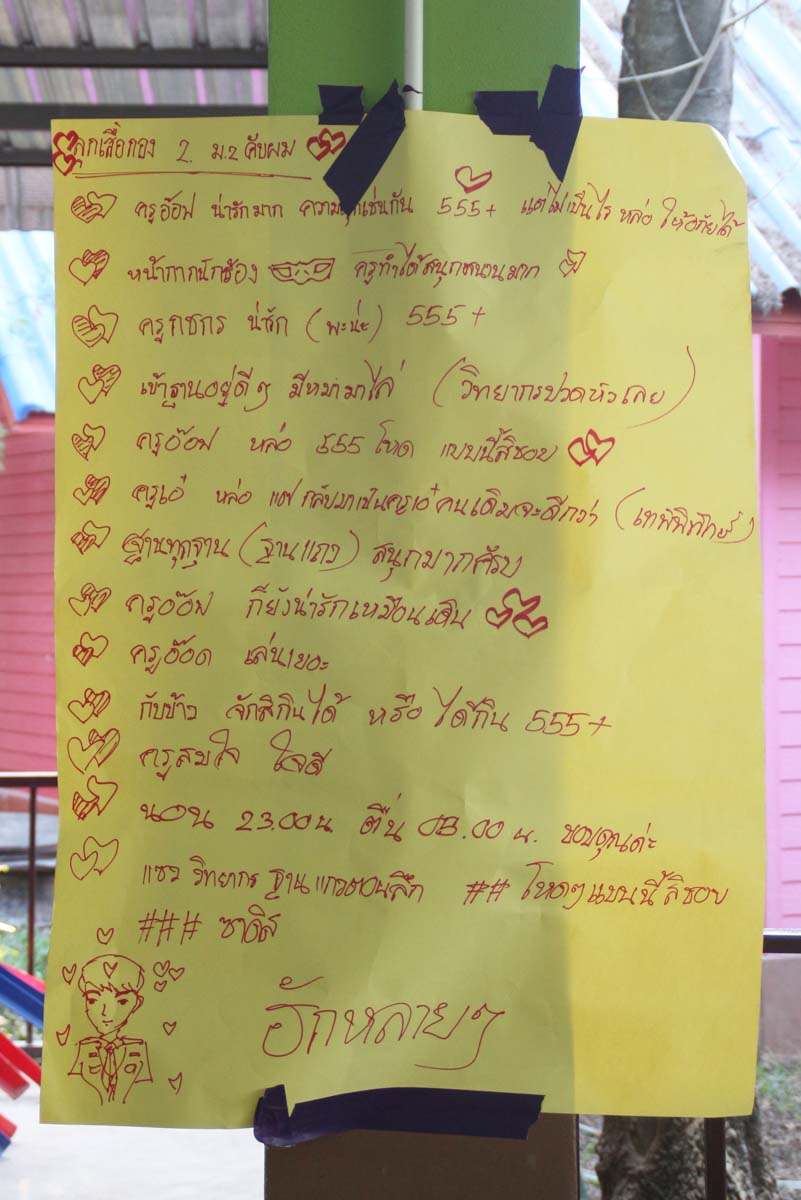 ลูกเสือกอง 2. ม.2 คับผม
ครูอ๊อฟ น่ารักมาก ความ เช่นกัน 555+ แต่ไม่เป็นไร หล่อ ให้อภัยได้
หน้ากากนักร้อง ครูทำได้สนุกสนานมาก
ครูกชกร น่ารัก (พะน่ะ) 555+
เข้าฐานอยู่ดีๆ มีหมามาไล่ (วิทยากรปวดหัวเลย)
ครูอ๊อฟ หล่อ 555 โหด แบบนี้สิชอบ
ครูเอ๋ หล่อ แต่ กลับมาเป็นครูเอ๋คนเดิมจะดีกว่า (เทพพิทักษ์)
ฐานทุกฐาน (ฐานแถว) สนุกมากครับ
ครูอ๊อฟ ก็ยังน่ารักเหมือนเดิม
ครูอ๊อด เล่นเยอะ
กับข้าว จักสิกินได้ หรือ ได้กิน 555+
ครูสมใจ ใจดี
นอน 23.00น ตื่น 03.00 น. ขอบคุณค่ะ
แซว วิทยากร ฐาน แถวตอนลึก ## โหดๆแบบนี้สิชอบ
### ซาดิส
ฮักหลายๆ